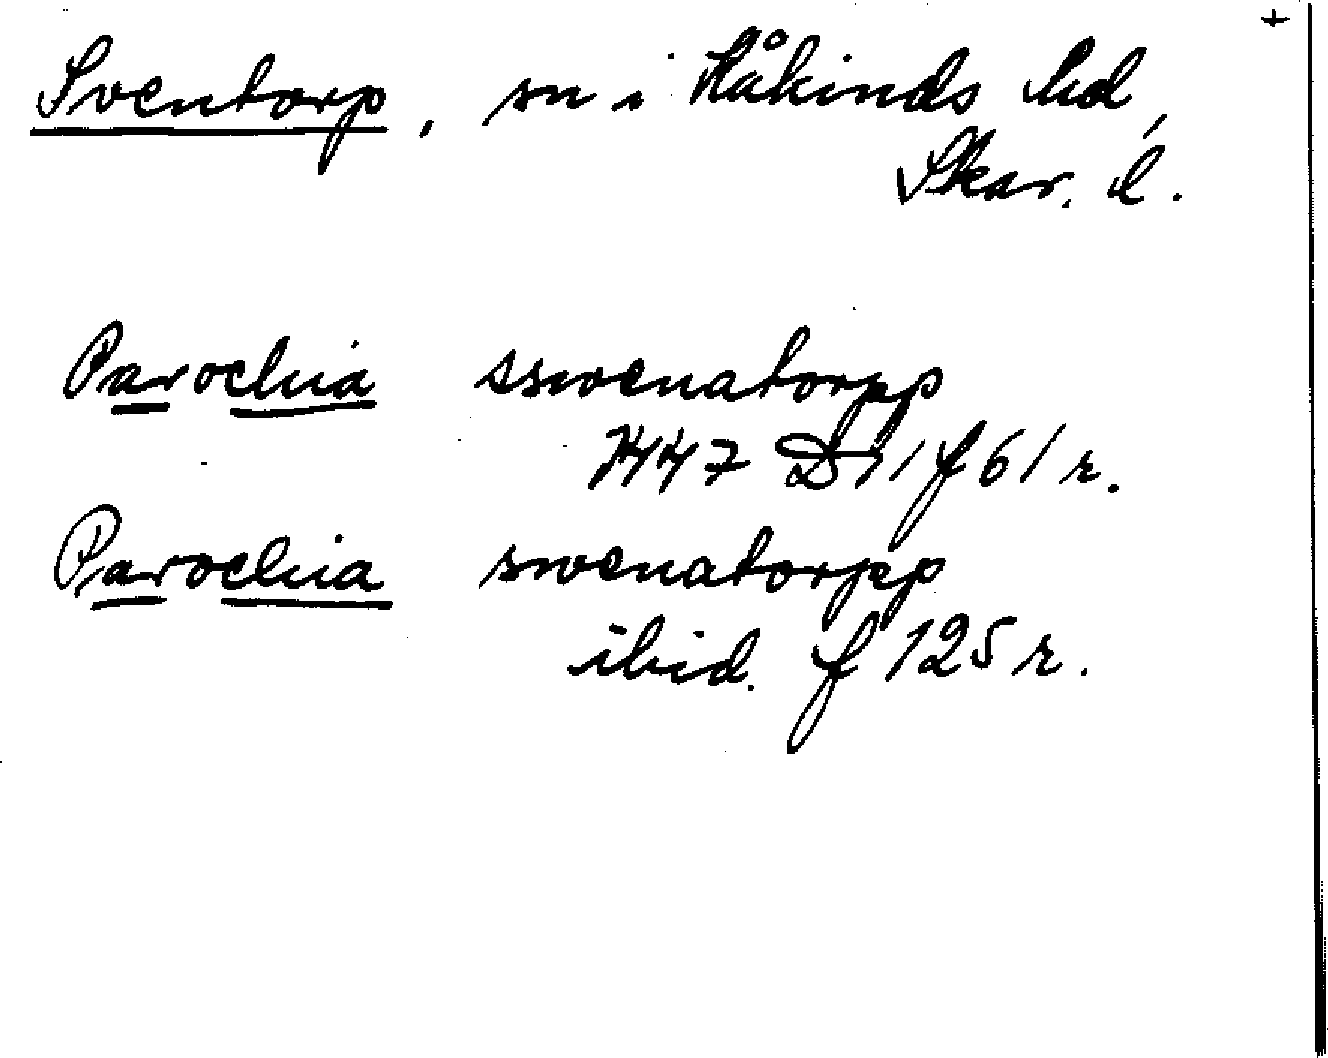 +
Sventorp, sn i Kåkinds hd,
Skar. l.
Parochia sswenatorpp
1447 D 11 f 61 r.
Parochia swenatorpp
ibid. f 125 r.